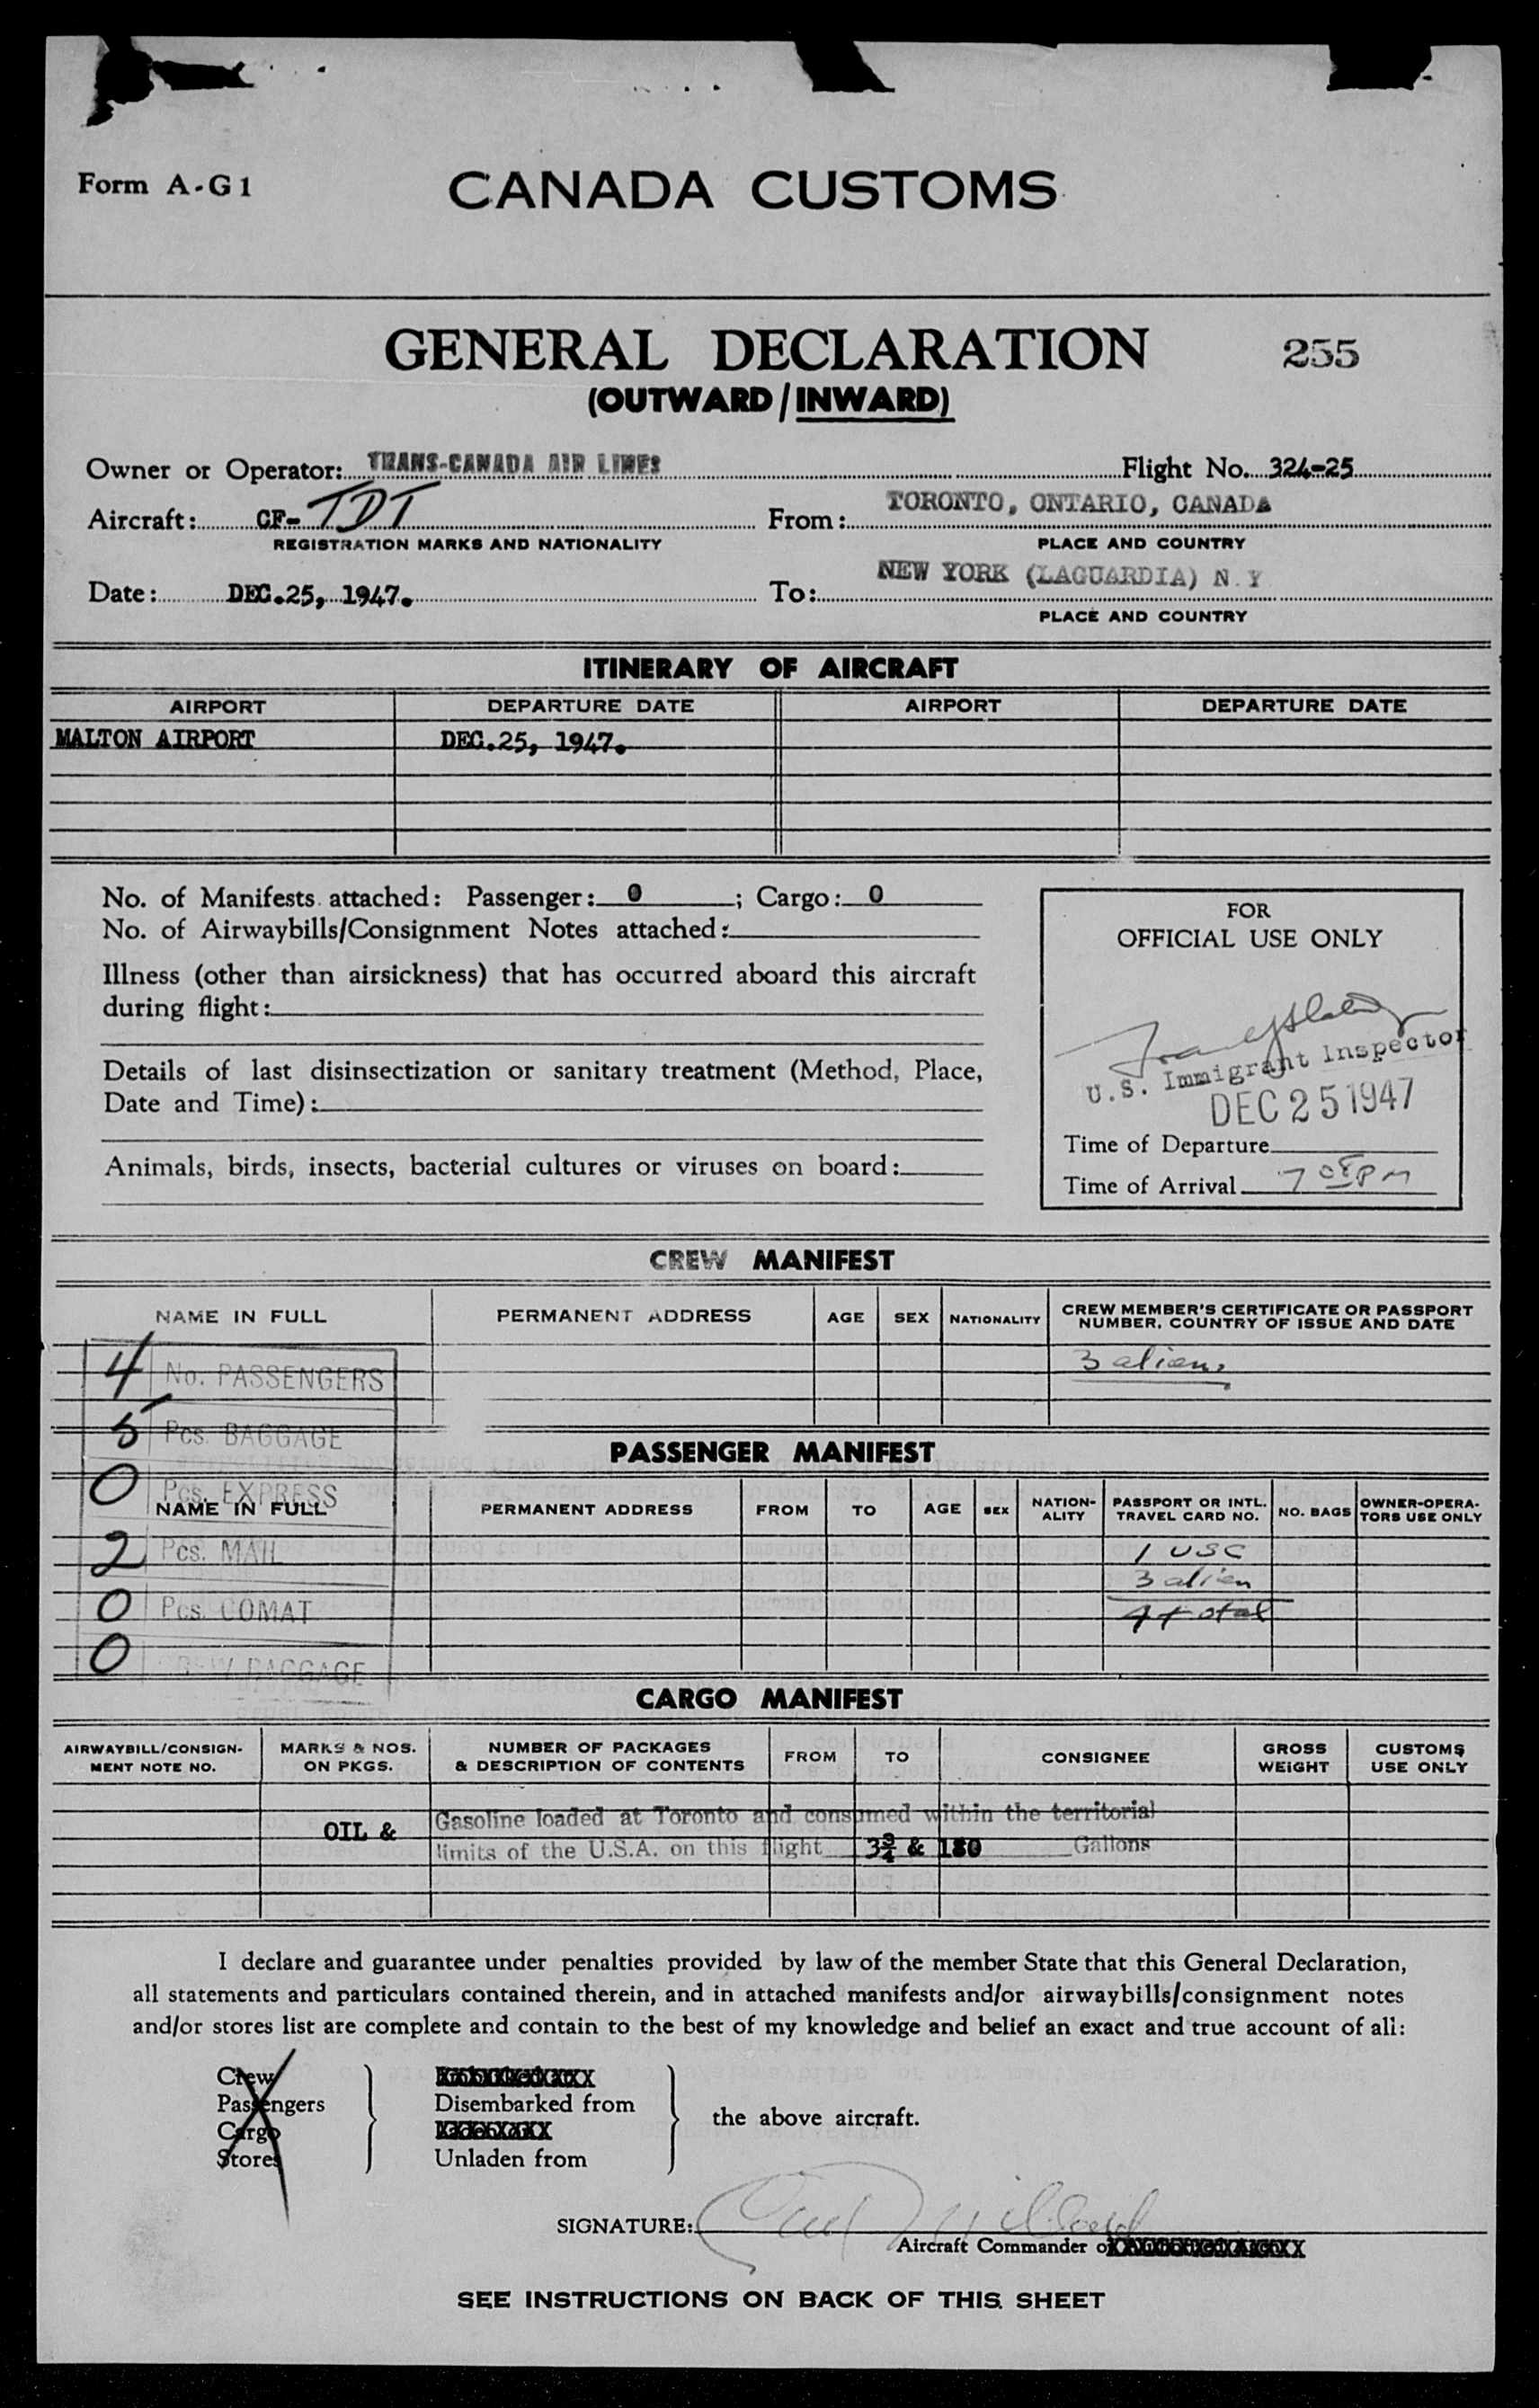 Form A-G1
CANADA CUSTOMS
GENERAL DECLARATION 255
(OUTWARD/INWARD)
Owner or Operator: TRANS-CANADA AIR LINES Flight No. 324-25
Aircraft: CF- TDT From: TORONTO, ONTARIO, CANADA
REGISTRATION MARKS AND NATIONALITY PLACE AND COUNTRY
Date: DEC.25, 1947. To: NEW YORK (LAGUARDIA) N.Y
PLACE AND COUNTRY
ITINERARY OF AIRCRAFT
AIRPORT DEPARTURE DATE AIRPORT DEPARTURE DATE
MALTON AIRPORT DEC.25, 1947.
No. of Manifests attached: Passenger: 0 ; Cargo: 0
No. of Airwaybills/Consignment Notes attached:
Illness (other than airsickness) that has occurred aboard this aircraft
during flight:
Details of last disinsectization or sanitary treatment (Method, Place,
Date and Time):
Animals, birds, insects, bacterial cultures or viruses on board:
FOR
OFFICIAL USE ONLY
U.S. Immigrant Inspector
DEC 25 1947
Time of Departure
Time of Arrival 7 05 PM
CREW MANIFEST
NAME IN FULL PERMANENT ADDRESS AGE SEX NATIONALITY CREW MEMBER'S CERTIFICATE OR PASSPORT
NUMBER, COUNTRY OF ISSUE AND DATE
3 aliens
4 No. PASSENGERS
5 Pcs. BAGGAGE
PASSENGER MANIFEST
0 Pcs. EXPRESS
NAME IN FULL PERMANENT ADDRESS FROM TO AGE SEX NATION-
ALITY PASSPORT OR INTL.
TRAVEL CARD NO. NO. BAGS OWNER-OPERA-
TORS USE ONLY
2 Pcs. MAIL 1 USC
3 alien
0 Pcs. COMAT 4 total
0 CREW BAGGAGE
CARGO MANIFEST
AIRWAYBILL/CONSIGN-
MENT NOTE NO. MARKS & NOS.
ON PKGS. NUMBER OF PACKAGES
& DESCRIPTION OF CONTENTS FROM TO CONSIGNEE GROSS
WEIGHT CUSTOMS
USE ONLY
OIL & Gasoline loaded at Toronto and consumed within the territorial
limits of the U.S.A. on this flight 3¾ & 180 Gallons
I declare and guarantee under penalties provided by law of the member State that this General Declaration,
all statements and particulars contained therein, and in attached manifests and/or airwaybills/consignment notes
and/or stores list are complete and contain to the best of my knowledge and belief an exact and true account of all:
Crew
Passengers Disembarked from
Cargo the above aircraft.
Stores Unladen from
SIGNATURE:
Aircraft Commander
SEE INSTRUCTIONS ON BACK OF THIS SHEET